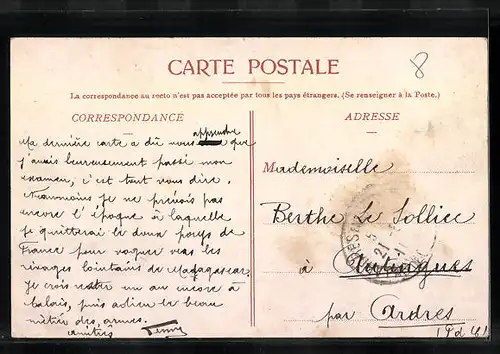 CARTE POSTALE
8
La correspondance au recto n'est pas acceptée par tous les pays étrangers. (Se renseigner à la Poste.)
CORRESPONDANCE
ADRESSE
apprendre
Ma dernière carte a dû vous que
j'avais heureusement passé mon
examen, c'est tout vous dire.
Néanmoins je ne prévois pas
encore l'époque à laquelle
je quitterai le doux pays de
France pour voguer vers les
rivages lointains de Madagascar.
Je crois rester un an encore à
Calais, puis adieu le beau
métier des armes.
amitiés
Mademoiselle
Berthe Le Solliec
à
par Ardres